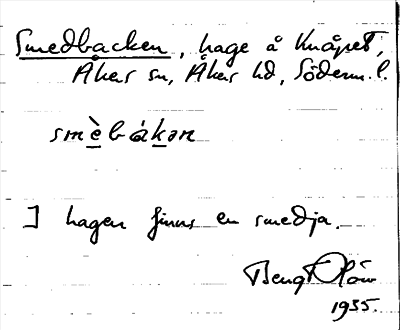 Smedbacken, hage å Knåpet,
Åkers sn, Åkers hd, Söderm. l.
smèbákən
I hagen finns en smedja.
Bengt
1935.